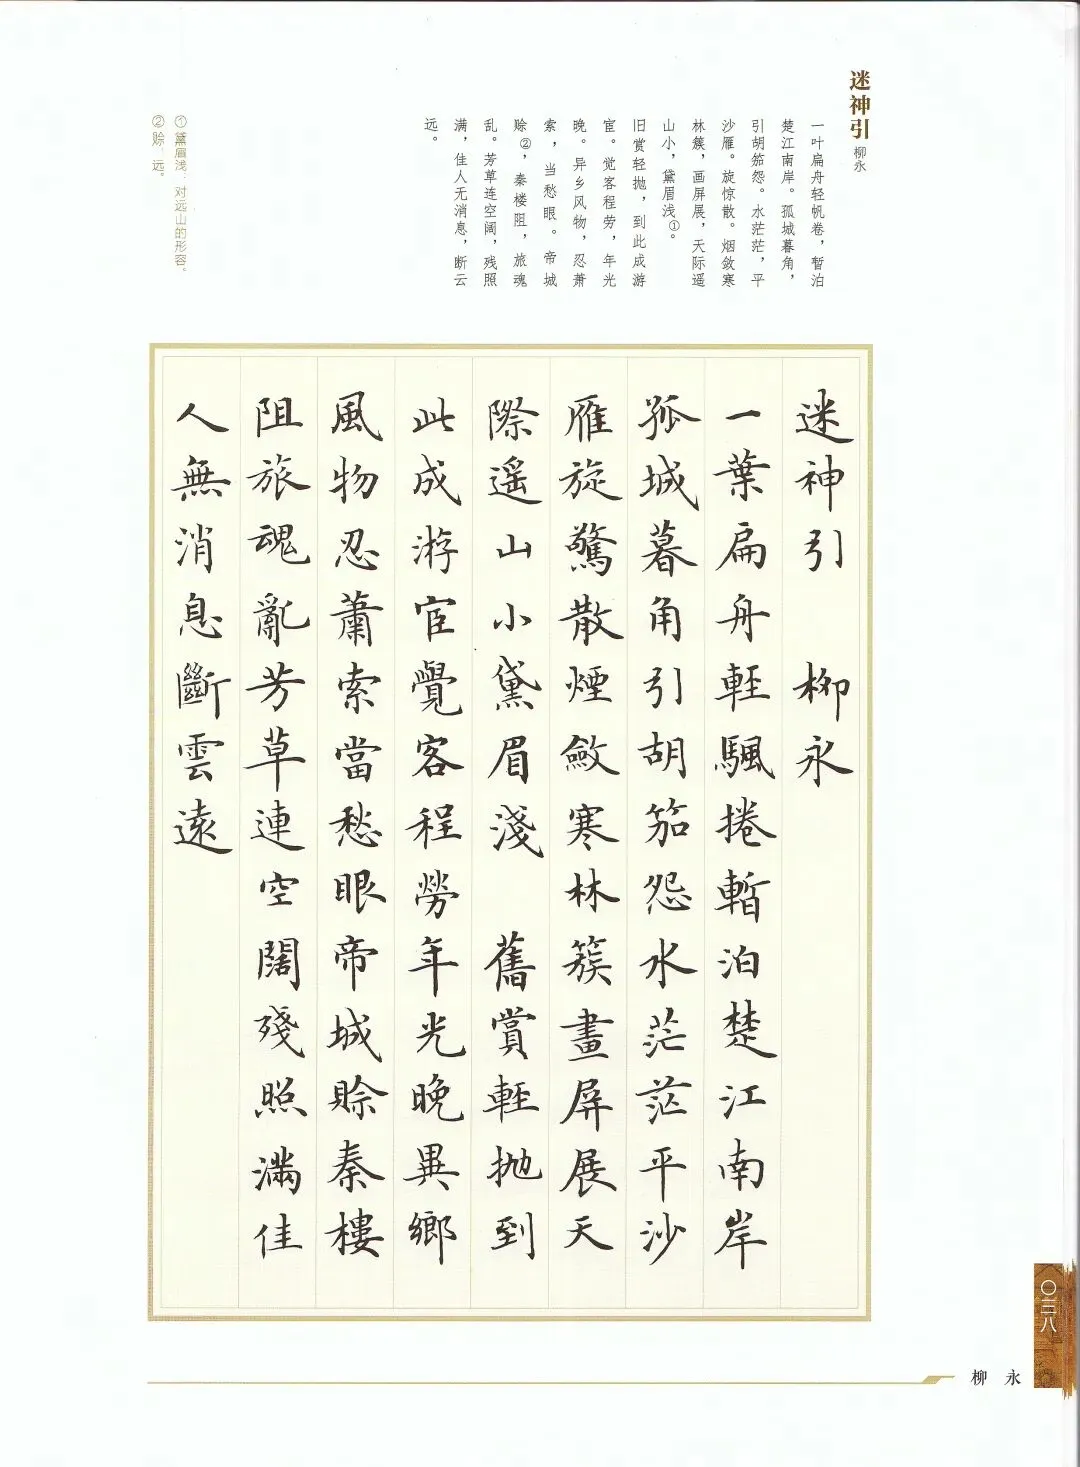 迷神引
柳永
一叶扁舟轻帆卷，暂泊
楚江南岸。孤城暮角，
引胡笳怨。水茫茫，平
沙雁。旋惊散。烟敛寒
林簇，画屏展，天际遥
山小，黛眉浅①。
旧赏轻抛，到此成游
宦。觉客程劳，年光
晚。异乡风物，忍萧
索，当愁眼。帝城
赊②，秦楼阻，旅魂
乱。芳草连空阔，残照
满，佳人无消息，断云
远。
①黛眉浅：对远山的形容。
②赊：远。
迷神引 柳永
一葉扁舟輕颿捲暫泊楚江南岸
孤城暮角引胡笳怨水茫茫平沙
雁旋驚散煙斂寒林簇畫屏展天
際遥山小黛眉淺 舊賞輕抛到
此成游宦覺客程勞年光晚異鄉
風物忍蕭索當愁眼帝城賒秦樓
阻旅魂亂芳草連空闊殘照滿佳
人無消息斷雲遠
〇三八
柳永